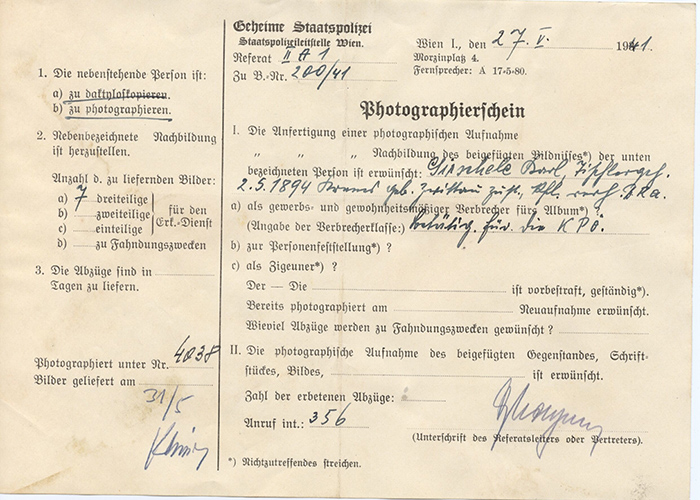 Geheime Staatspolizei
Staatspolizeileitstelle Wien.
Referat II A 1
Zu B.-Nr. 200/41
Wien I., den 27. V. 1941.
Morzinplatz 4.
Fernsprecher: A 17-5-80.
1. Die nebenstehende Person ist:
a) zu daktyloskopieren.
b) zu photographieren.
2. Nebenbezeichnete Nachbildung ist herzustellen.
Anzahl d. zu liefernden Bilder:
a) 7 dreiteilige
b) zweiteilige
c) einteilige
für den Erk.-Dienst
d) zu Fahndungszwecken
3. Die Abzüge sind in
Tagen zu liefern.
Photographiert unter Nr. 4038
Bilder geliefert am
31/5
Photographierschein
I. Die Anfertigung einer photographischen Aufnahme
" " " Nachbildung des beigefügten Bildnisses*) der unten
bezeichneten Person ist erwünscht: Karl,
2.5.1894
a) als gewerbs- und gewohnheitsmäßiger Verbrecher fürs Album*) ?
(Angabe der Verbrecherklasse:) für die KPÖ.
b) zur Personenfeststellung*) ?
c) als Zigeuner*) ?
Der — Die ist vorbestraft, geständig*).
Bereits photographiert am Neuaufnahme erwünscht.
Wieviel Abzüge werden zu Fahndungszwecken gewünscht ?
II. Die photographische Aufnahme des beigefügten Gegenstandes, Schrift-
stückes, Bildes, ist erwünscht.
Zahl der erbetenen Abzüge:
Anruf int.: 356
(Unterschrift des Referatsleiters oder Vertreters).
*) Nichtzutreffendes streichen.